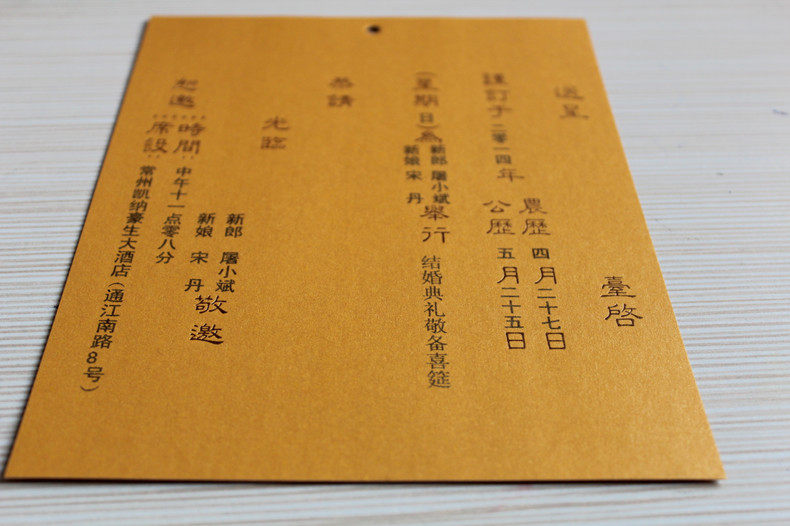 送呈 臺啓
謹訂于二零一四年 農歷 四月二十七日
公歷 五月二十五日
(星期日)為 新郎 屠小斌 舉行 结婚典礼敬备喜筵
新娘 宋丹
恭請
光臨
新郎 屠小斌
新娘 宋丹 敬邀
恕邀 時間 中午十一点零八分
席設 常州凯纳豪生大酒店(通江南路8号)